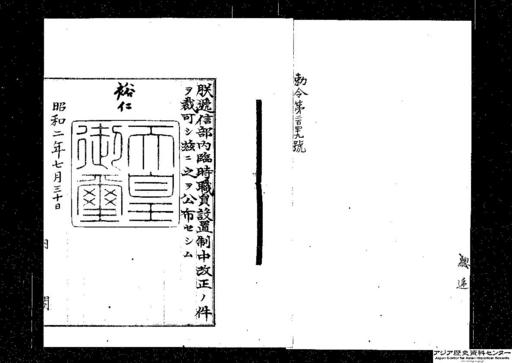 勅令第二百四十九號
朕遞信部內臨時職員設置制中改正ノ件
ヲ裁可シ茲ニ之ヲ公布セシム
裕仁
天皇御璽
昭和二年七月三十日
內閣
アジア歴史資料センター
Japan Center for Asian Historical Records